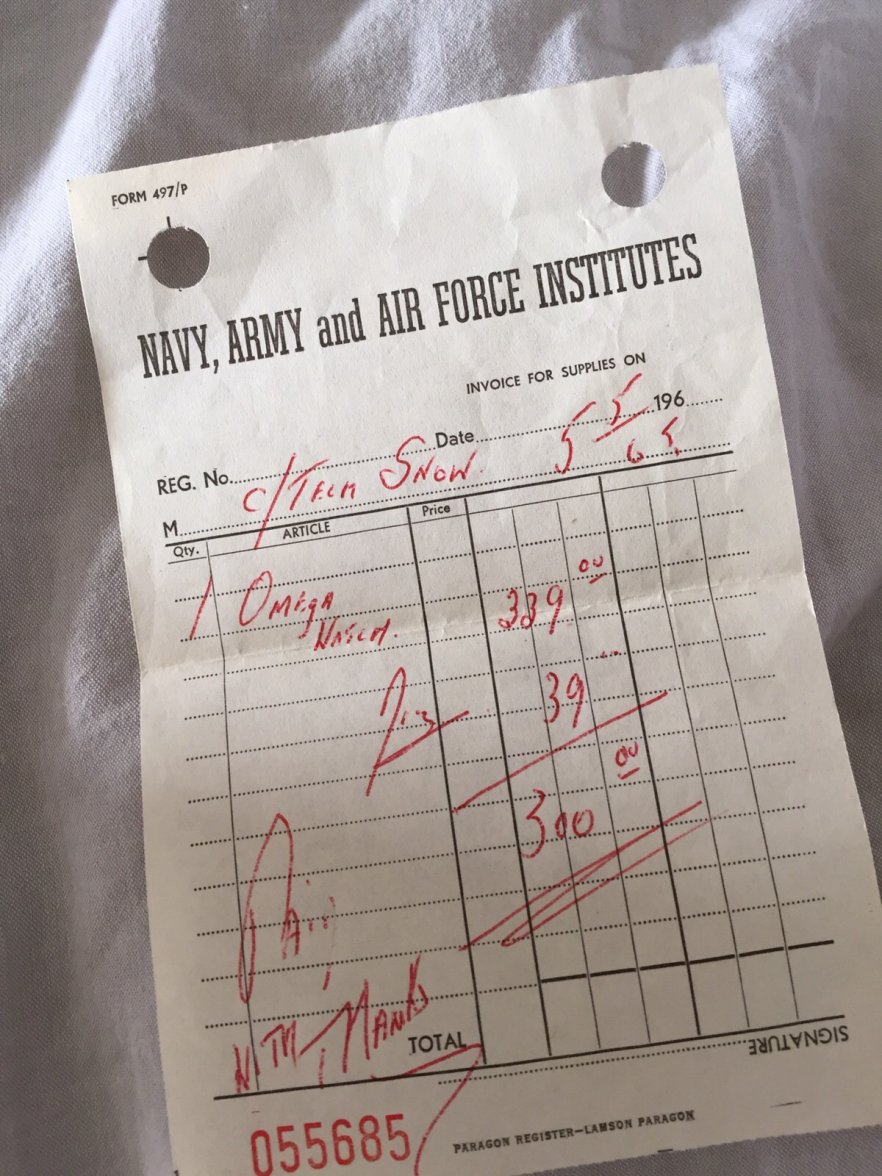 FORM 497/P
NAVY, ARMY and AIR FORCE INSTITUTES
INVOICE FOR SUPPLIES ON
REG. No. Date 5 5 196
M C/TECH SNOW 65
Qty. ARTICLE Price
1 OMEGA 339 00
WATCH.
39
300 00
PAID
WITH THANKS
TOTAL
SIGNATURE
055685
PARAGON REGISTER—LAMSON PARAGON